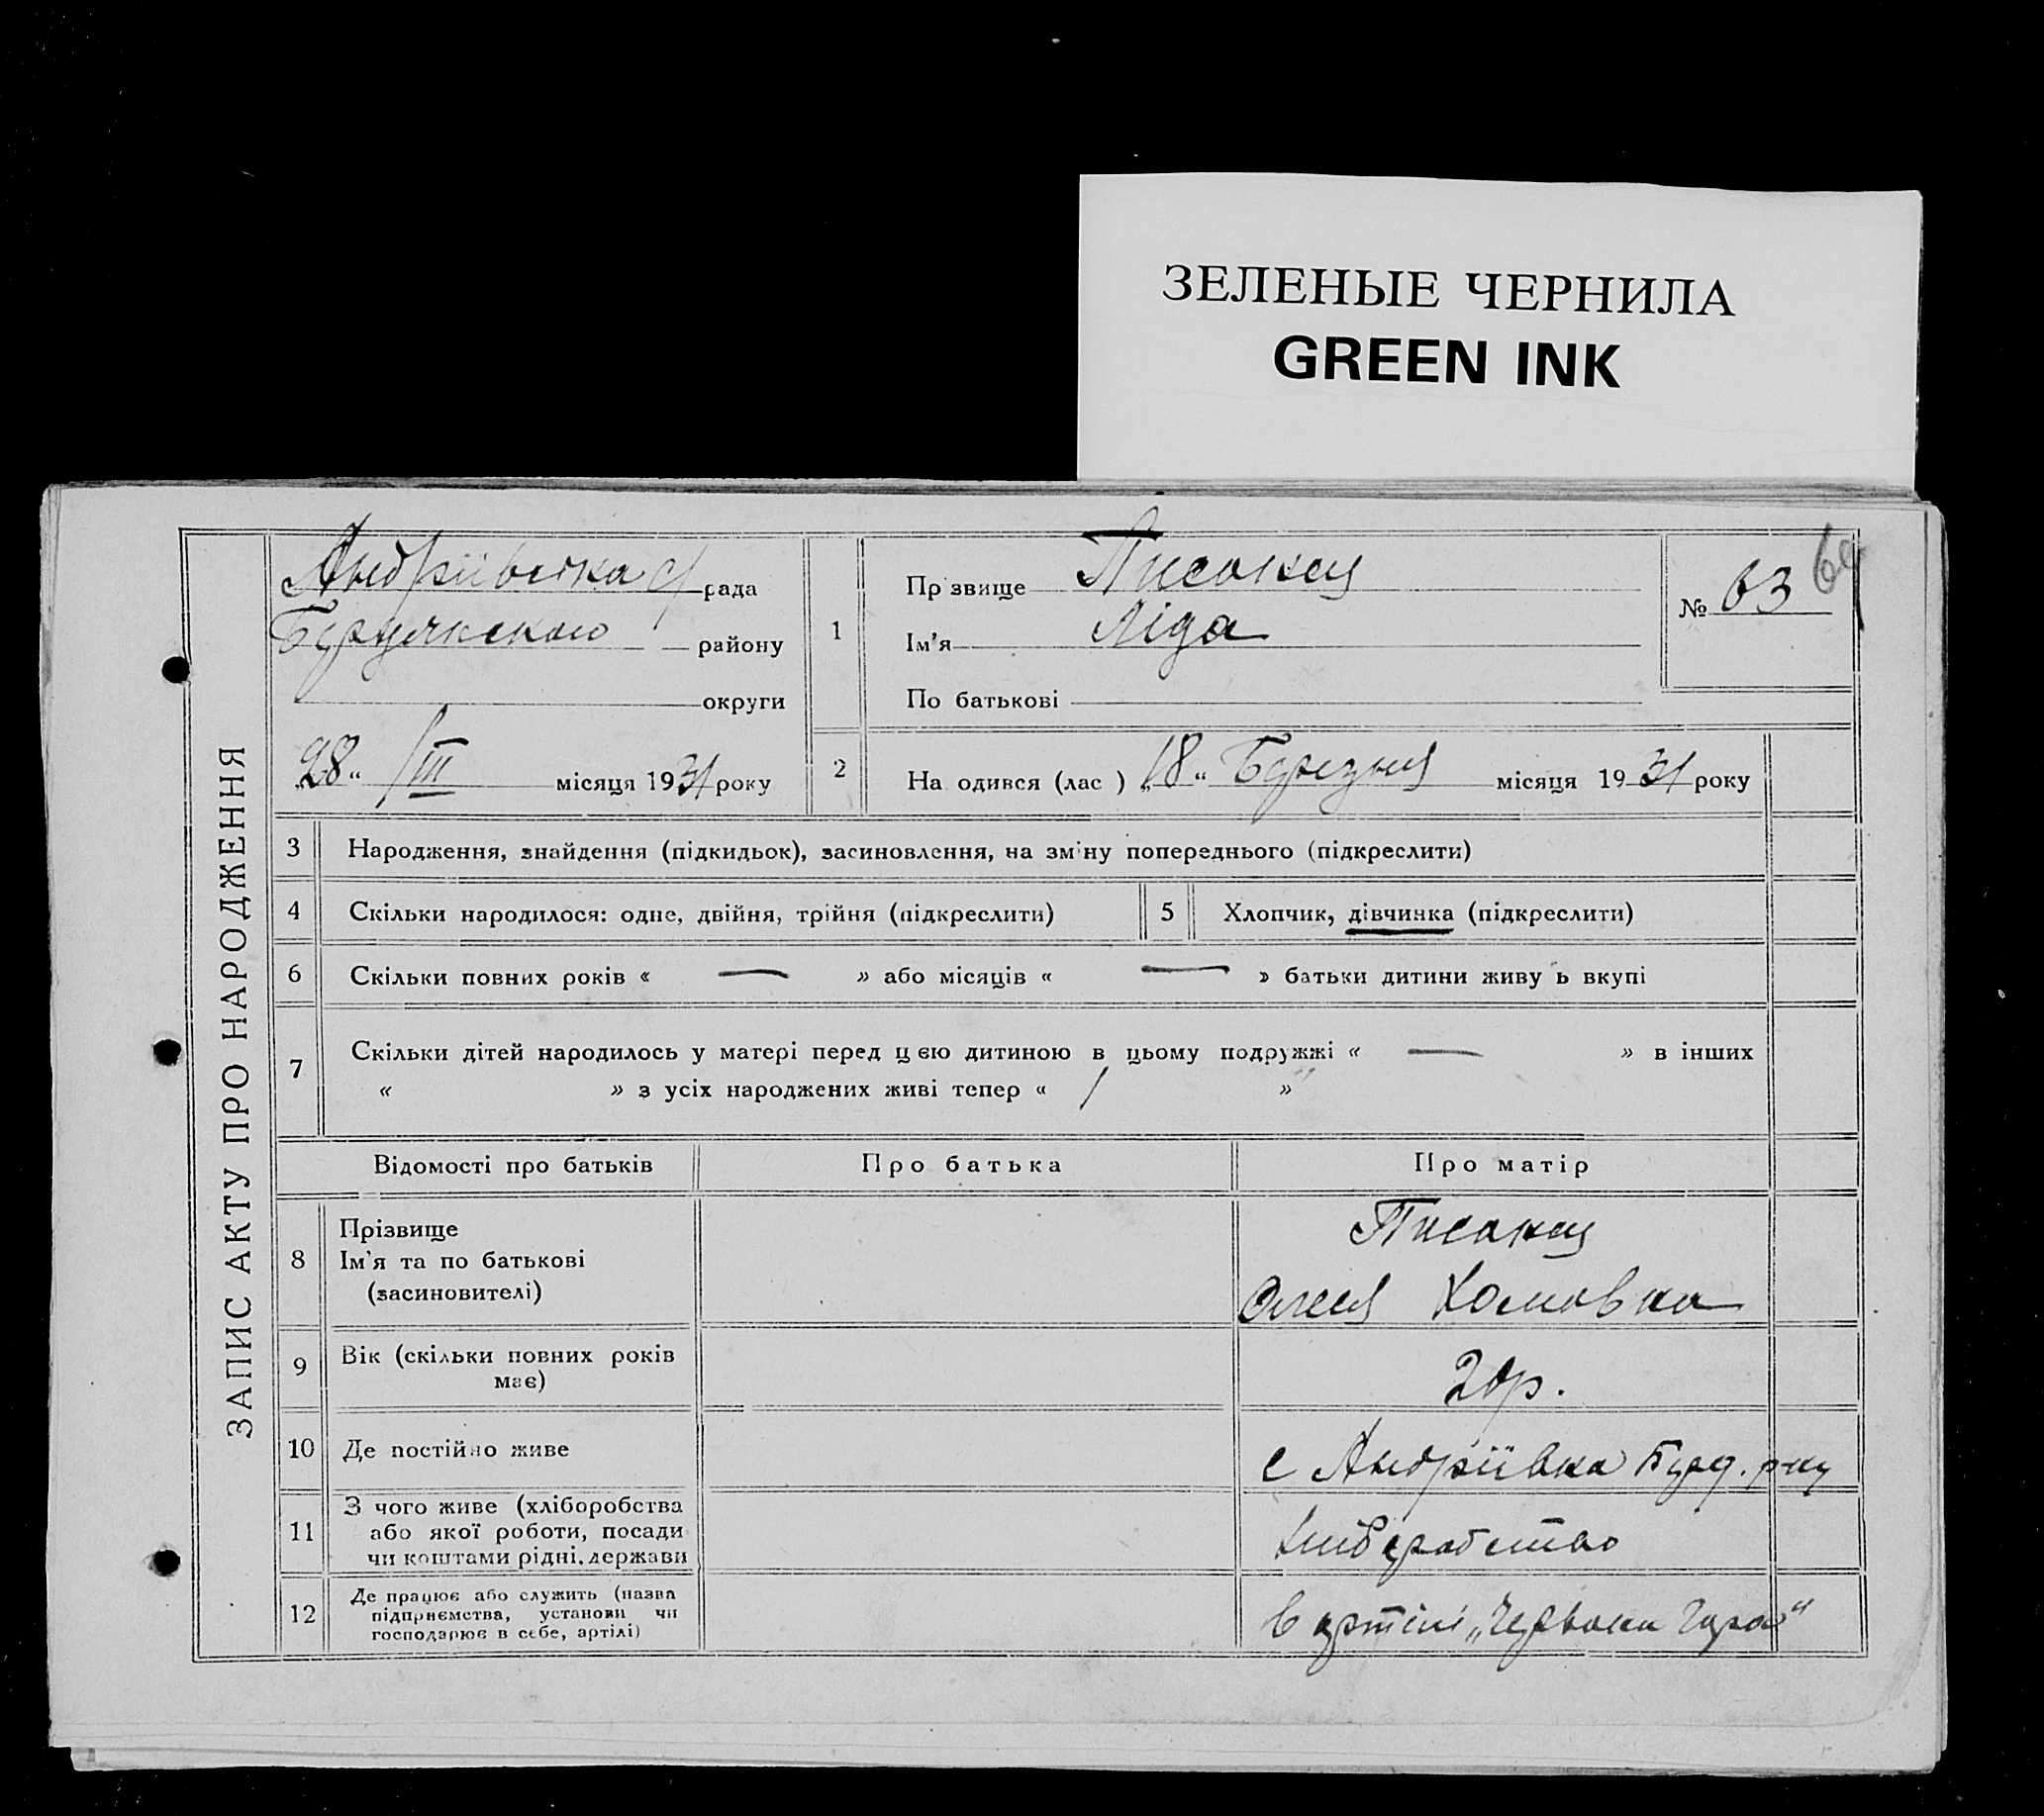 ЗЕЛЕНЫЕ ЧЕРНИЛА
GREEN INK
ЗАПИС АКТУ ПРО НАРОДЖЕННЯ
Андріївська с/рада
району
округи
„28“ /III місяця 1931 року
1
Прізвище
Ім'я Ліда
По батькові
№ 63
2 На одився (лас ) „18“ Березня місяця 1931 року
3 Народження, знайдення (підкидьок), засиновлення, на зміну попереднього (підкреслити)
4 Скільки народилося: одне, двійня, трійня (підкреслити)
5 Хлопчик, дівчинка (підкреслити)
6 Скільки повних років « — » або місяців « — » батьки дитини живу ь вкупі
7 Скільки дітей народилось у матері перед цею дитиною в цьому подружжі « — » в інших
« » з усіх народжених живі тепер « / »
Відомості про батьків Про батька Про матір
8 Прізвище
Ім'я та по батькові
(засиновителі)
Хомовна
9 Вік (скільки повних років
має)
20р.
10 Де постійно живе с Андріївка
11 З чого живе (хліборобства
або якої роботи, посади
чи коштами рідні, держави
12 Де працює або служить (назва
підприємства, установи чи
господарює в себе, артілі)
в артілі „Червона